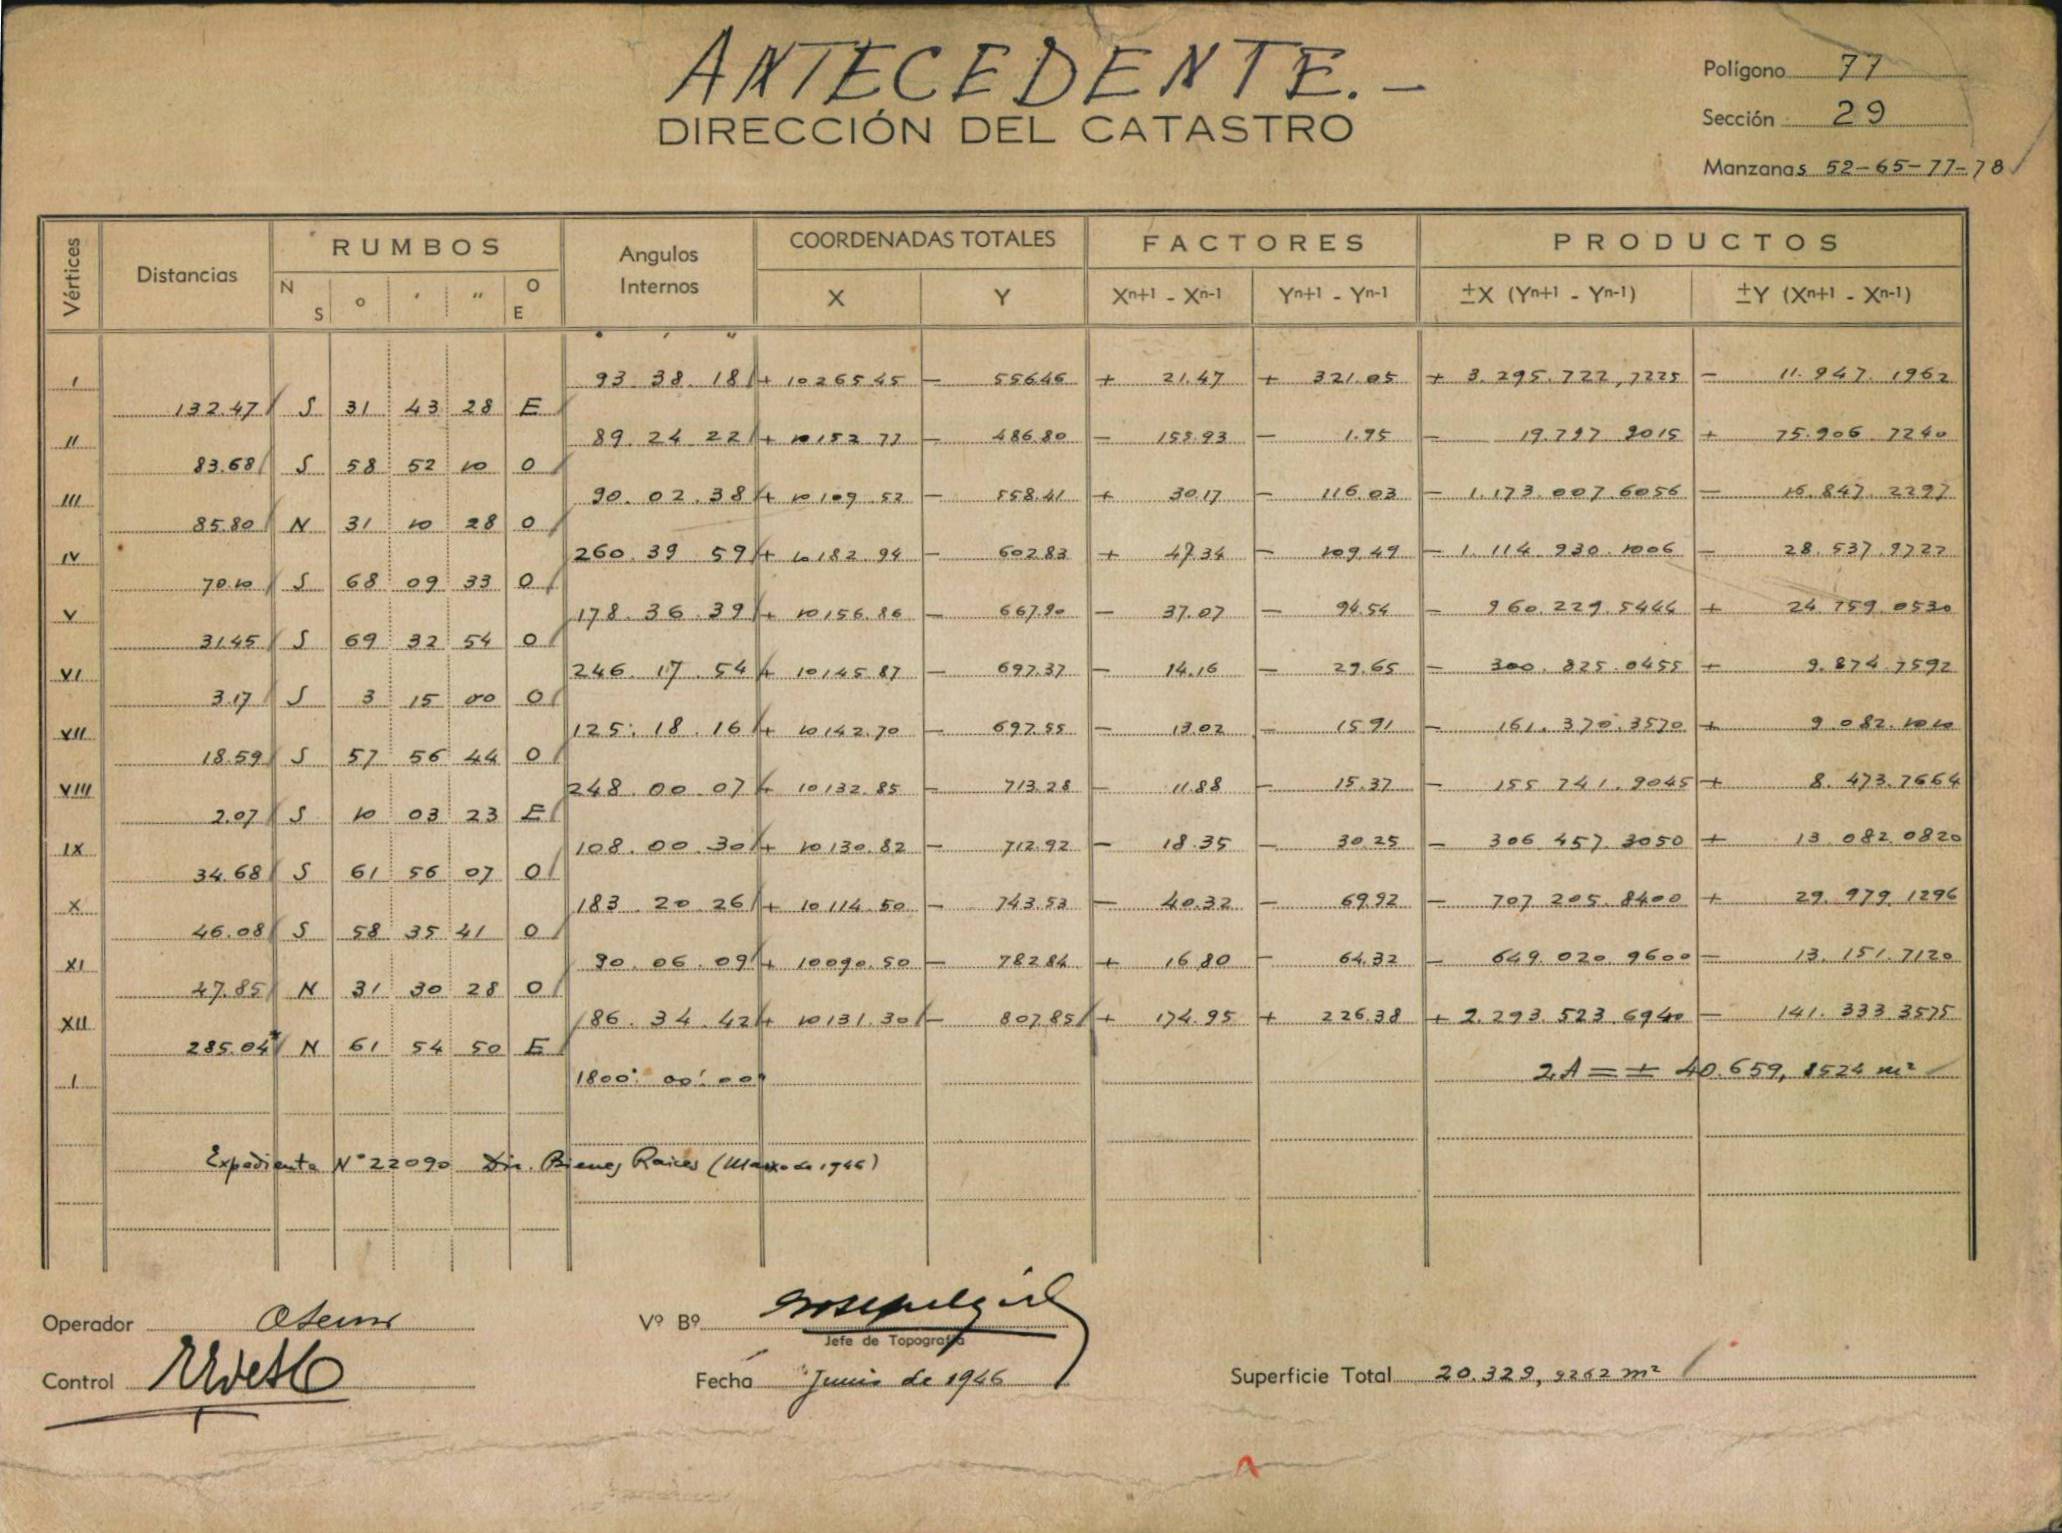 ANTECEDENTE.-
DIRECCIÓN DEL CATASTRO
Polígono 77
Sección 29
Manzanas 52-65-77-78
Vértices Distancias RUMBOS Angulos Internos COORDENADAS TOTALES FACTORES PRODUCTOS
N S ° ' " O E X Y Xn+1 - Xn-1 Yn+1 - Yn-1 ±X (Yn+1 - Yn-1) ±Y (Xn+1 - Xn-1)
° ' "
I 93 38 18 + 10265 45 - 556.46 + 21.47 + 321.05 + 3.295.722,7225 - 11.947.1962
132.47 S 31 43 28 E
II 89.24 22 + 10152 77 - 486.80 - 155.93 - 1.95 - 19.797 9015 + 75.906.7240
83.68 S 58 52 10 O
III 90.02.38 + 10109 52 - 558.41 + 30.17 - 116.03 - 1.173.007.6056 - 16.847.2297
85.80 N 31 10 28 O
IV 260.39 59 + 10182 94 - 602.83 + 47.34 - 109.49 - 1.114 930.1006 - 28.537.9722
70.10 S 68 09 33 O
V 178.36.39 + 10156.86 - 667.90 - 37.07 - 94.54 - 960.229.5444 + 24.759 0530
31.45 S 69 32 54 O
VI 246.17.54 + 10145.87 - 697.37 - 14.16 - 29.65 - 300.825.0455 + 9.874.7592
3.17 S 3 15 00 O
VII 125.18.16 + 10142.70 - 697.55 - 13.02 - 15.91 - 161.370.3570 + 9.082.1010
18.59 S 57 56 44 O
VIII 248.00.07 + 10132.85 - 713.28 - 11.88 - 15.37 - 155 741.9045 + 8.473.7664
2.07 S 10 03 23 E
IX 108.00.30 + 10130.82 - 712.92 - 18.35 - 30.25 - 306 457.3050 + 13 082.0820
34.68 S 61 56 07 O
X 183 20.26 + 10114.50 - 743.53 - 40.32 - 69.92 - 707 205.8400 + 29.979.1296
46.08 S 58 35 41 O
XI 90.06.09 + 10090.50 - 782.84 + 16.80 - 64.32 - 649.020.9600 - 13.151.7120
47.85 N 31 30 28 O
XII 86.34.42 + 10131.30 - 807.85 + 174.95 + 226.38 + 2.293.523.6940 - 141.333 3575
285.04 N 61 54 50 E
I 1800° 00' 00" 2A = ± 40.659,8524 m²
Expediente N° 22090 Dir. Bienes Raices (Marzo de 1946)
Operador
Vº Bº
Jefe de Topografía
Control
Fecha Junio de 1946
Superficie Total 20.329,9262 m²